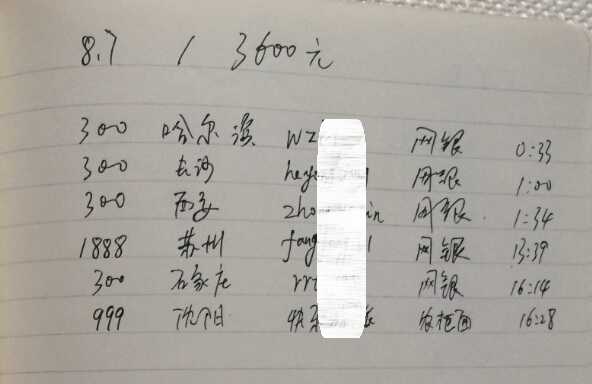 8.7 1 3600元
300 哈尔滨 wz 网银 0:33
300 长沙 hey 1 网银 1:00
300 西安 zho in 网银 1:34
1888 苏州 fang 1 网银 13:39
300 石家庄 rr 网银 16:14
999 沈阳 快乐 农柜面 16:28